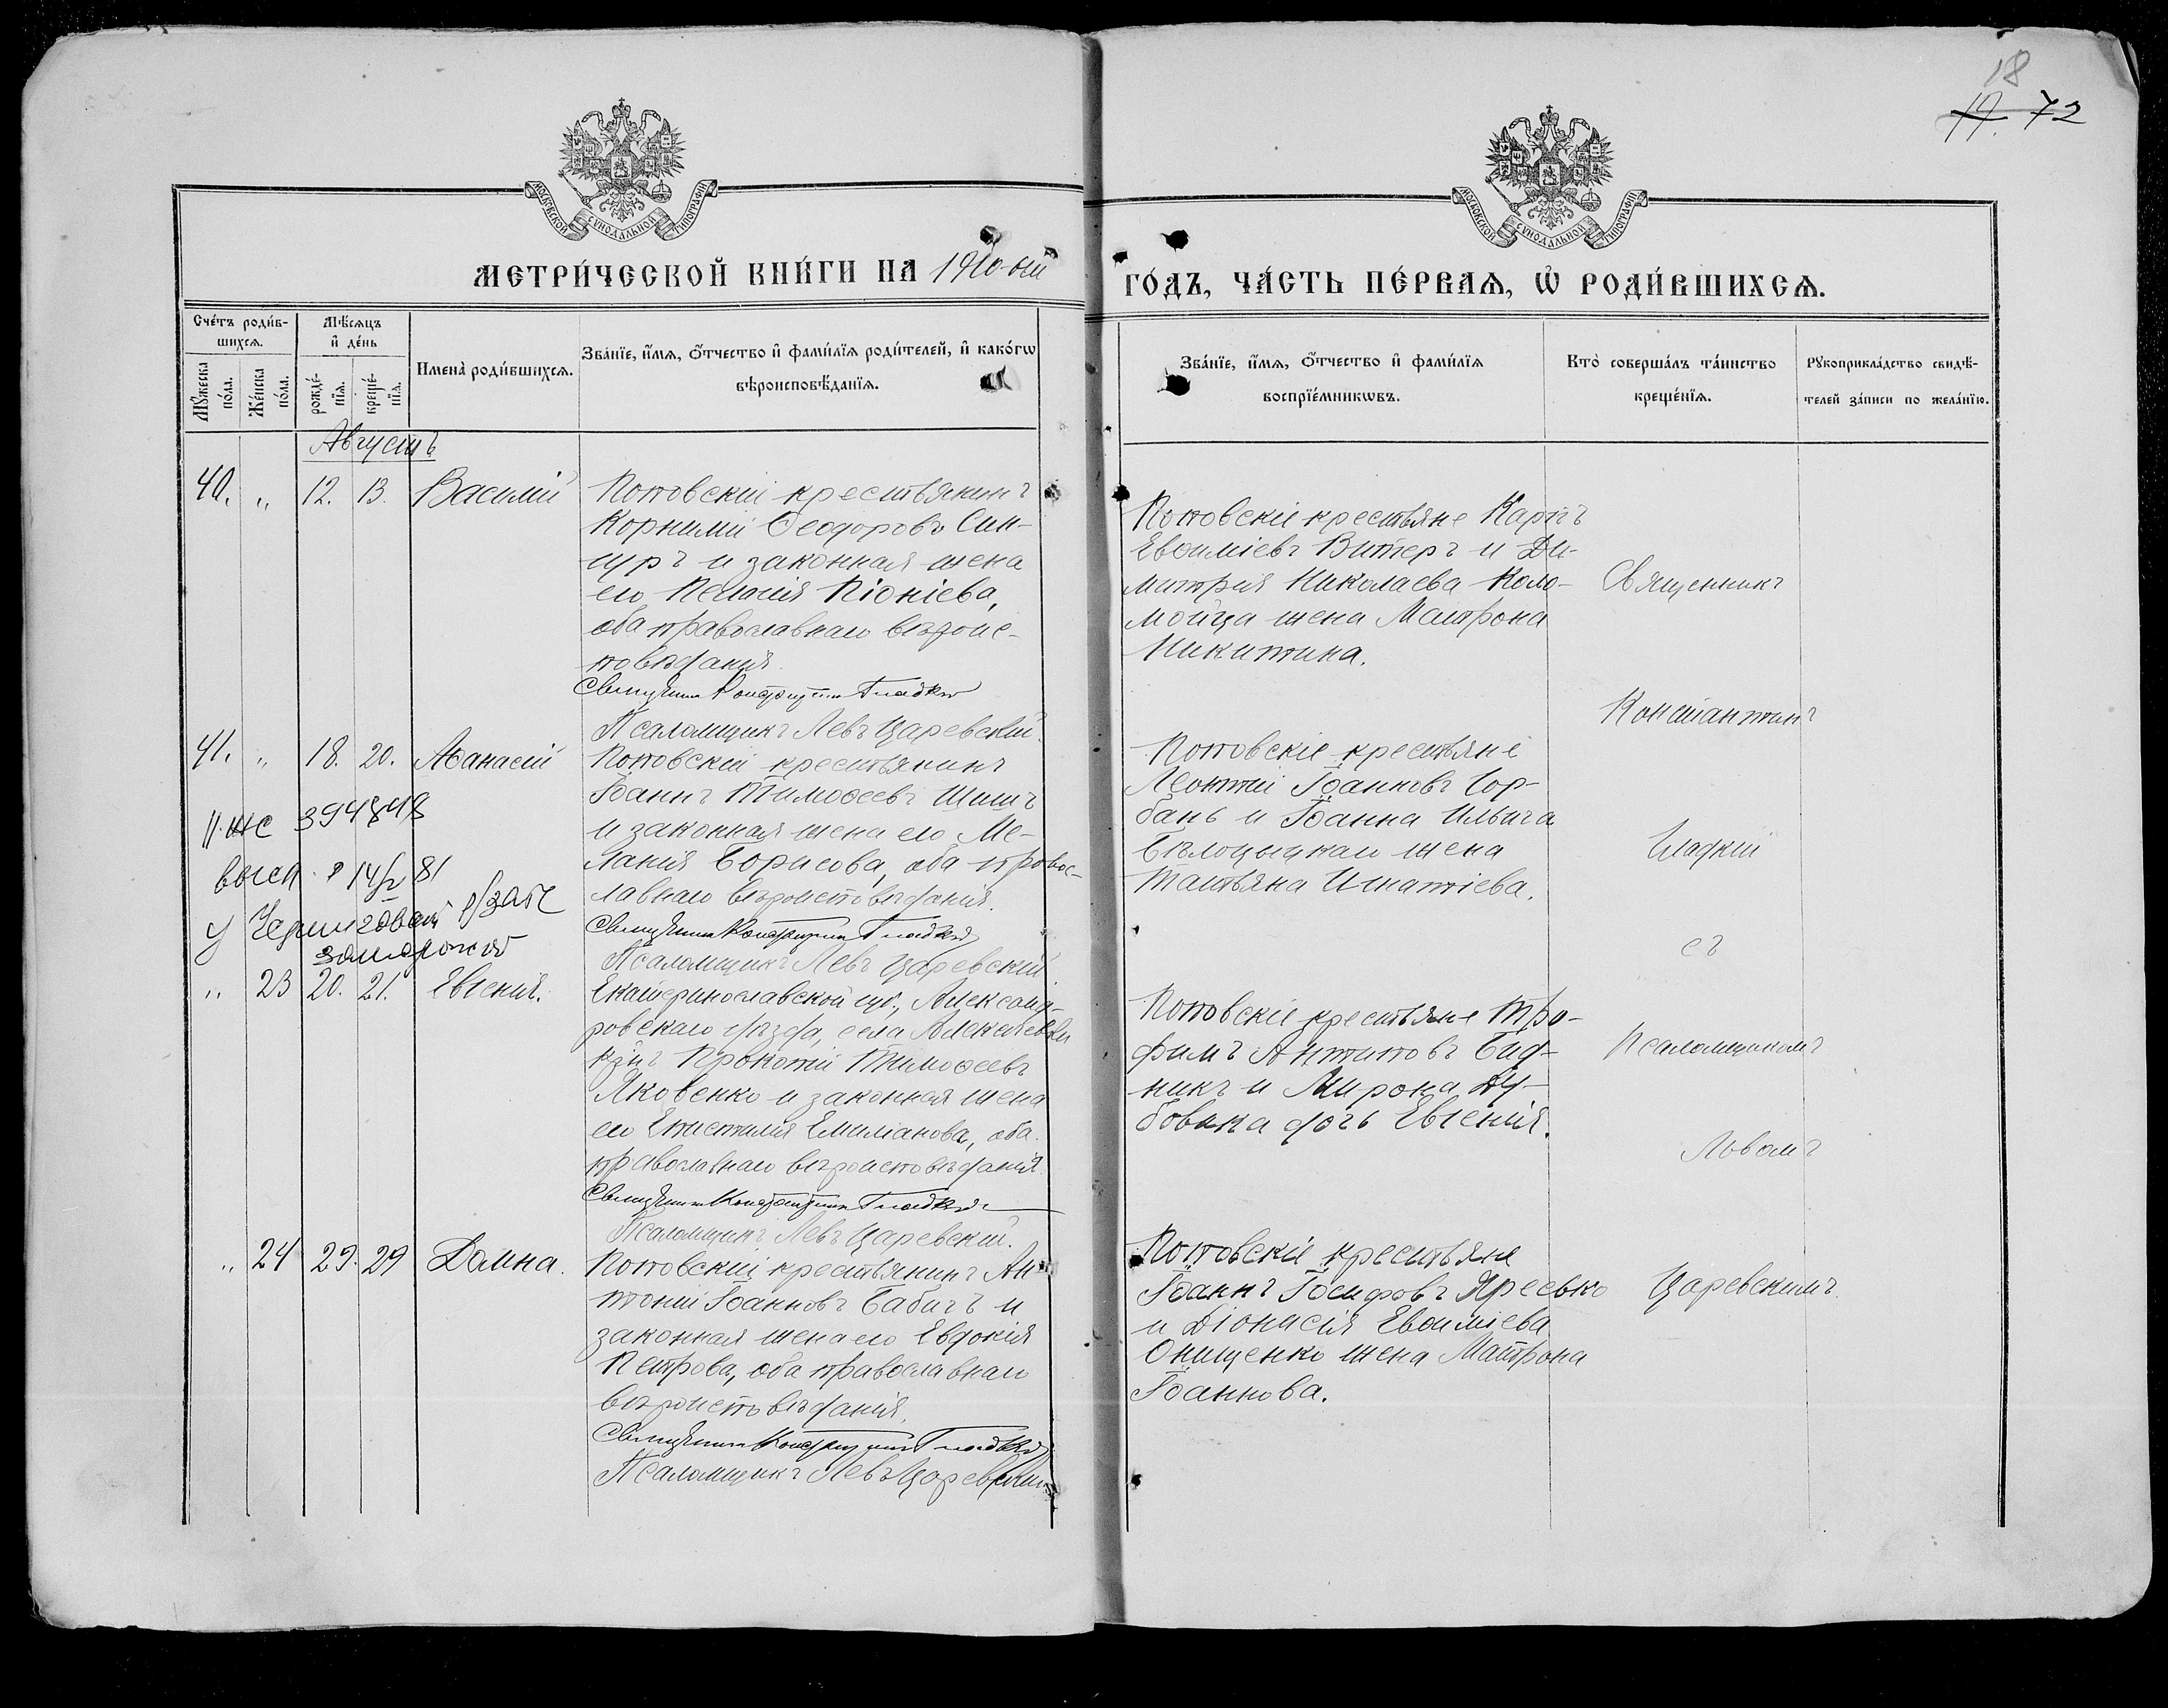 18
17. 72
МОСКОВСКОЙ СѴНОДАЛЬНОЙ ТИПОГРАФІИ
МОСКОВСКОЙ СѴНОДАЛЬНОЙ ТИПОГРАФІИ
МЕТРИ́ЧЕСКОЙ КНИ́ГИ НА 1910-ый ГО́ДЪ, ЧА́СТЬ ПЕ́РВАѦ, Ѡ҆ РОДИ́ВШИХСѦ.
Сче́тъ роди́в-
шихсѧ.
Мꙋ́жеска
по́ла.
Же́нска
по́ла.
Мѣ́сѧцъ
и҆ де́нь
рожде́-
нїѧ.
креще́-
нїѧ.
Имена̀ роди́вшихсѧ.
Зва́нїе, и҆́мѧ, ѻ҆́тчество и҆ фами́лїѧ роди́телей, и҆ како́гѡ
вѣроисповѣ́данїѧ.
Зва́нїе, и҆́мѧ, ѻ҆́тчество и҆ фами́лїѧ
воспрїе́мникѡвъ.
Кто̀ соверша́лъ та́инство
креще́нїѧ.
Рꙋкоприкла́дство свидѣ́-
телей за́писи по жела́нїю.
Августъ
40. „ 12. 13. Василій
Поповскій крестьянинъ
Корнилій Ѳеодоровъ Син-
цръ и законная жена
его Пелагія Піоніева,
оба православнаго вѣроис-
повѣданія.
Священникъ Константинъ Гладкій
Псаломщикъ Левъ Царевскій.
Поповскіе крестьяне Карпъ
Евѳиміевъ Витеръ и Ди-
митрія Николаева Коло-
мойца жена Матрона
Никитина.
41. „ 18. 20. Аѳанасій
Поповскій крестьянинъ
Іоаннъ Тимоѳеевъ Шишъ
и законная жена его Ме-
ланія Борисова, оба правос-
лавнаго вѣроисповѣданія.
Священникъ Константинъ Гладкій
Псаломщикъ Левъ Царевскій
Поповскіе крестьяне
Леонтій Іоанновъ Гор-
бань и Іоанна Ильича
Бѣлоцыцкаго жена
Татьяна Игнатіева.
394848
14/2 81
„ 23 20. 21. Евгенія.
Екатеринославской губ., Александ-
ровскаго уѣзда, села Алексѣевки
кр-нъ Прокопій Тимоѳеевъ
Яковенко и законная жена
его Епистимія Емиліанова, оба
православнаго вѣроисповѣданія
Священникъ Константинъ Гладкій
Псаломщикъ Левъ Царевскій.
Поповскіе крестьяне Тро-
фимъ Антиповъ Бид-
никъ и Мирона Ду-
бовика дочь Евгенія.
„ 24 29. 29 Домна.
Поповскій крестьянинъ Ан-
тоній Іоанновъ Бабичъ и
законная жена его Евдокія
Петрова, оба православнаго
вѣроисповѣданія.
Священникъ Константинъ Гладкій
Псаломщикъ Левъ Царевскій
Поповскіе крестьяне
Іоаннъ Іосифовъ Яресько
и Діонисія Евѳиміева
Онищенко жена Матрона
Іоаннова.
Священникъ
Константинъ
Гладкій
съ
Псаломщикомъ
Львомъ
Царевскимъ.